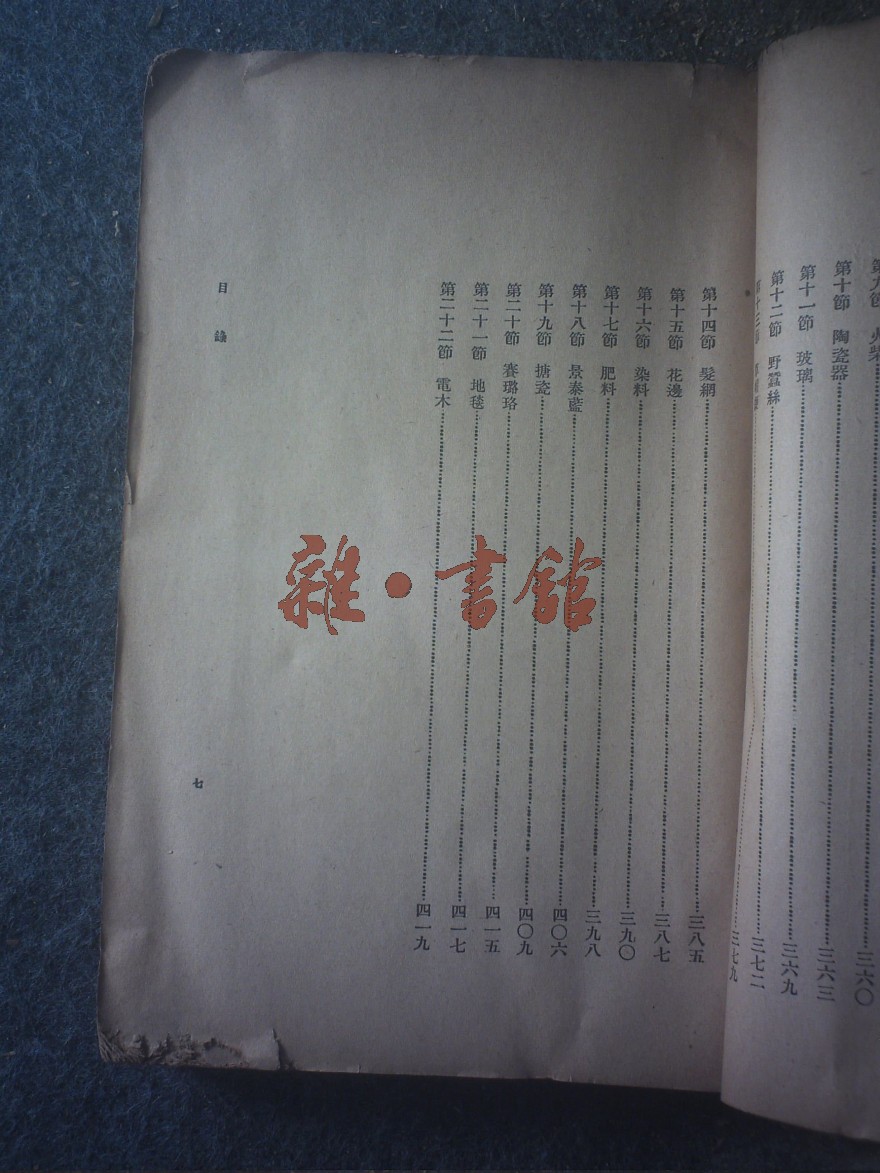 第十節　陶瓷器……三六三
第十一節　玻璃……三六九
第十二節　野蠶絲……三七二
三七九
第十四節　髮網……三八五
第十五節　花邊……三八七
第十六節　染料……三九〇
第十七節　肥料……三九八
第十八節　景泰藍……四〇六
第十九節　搪瓷……四〇九
第二十節　賽璐珞……四一五
第二十一節　地毯……四一七
第二十二節　電木……四一九
目錄
七
雜·書館